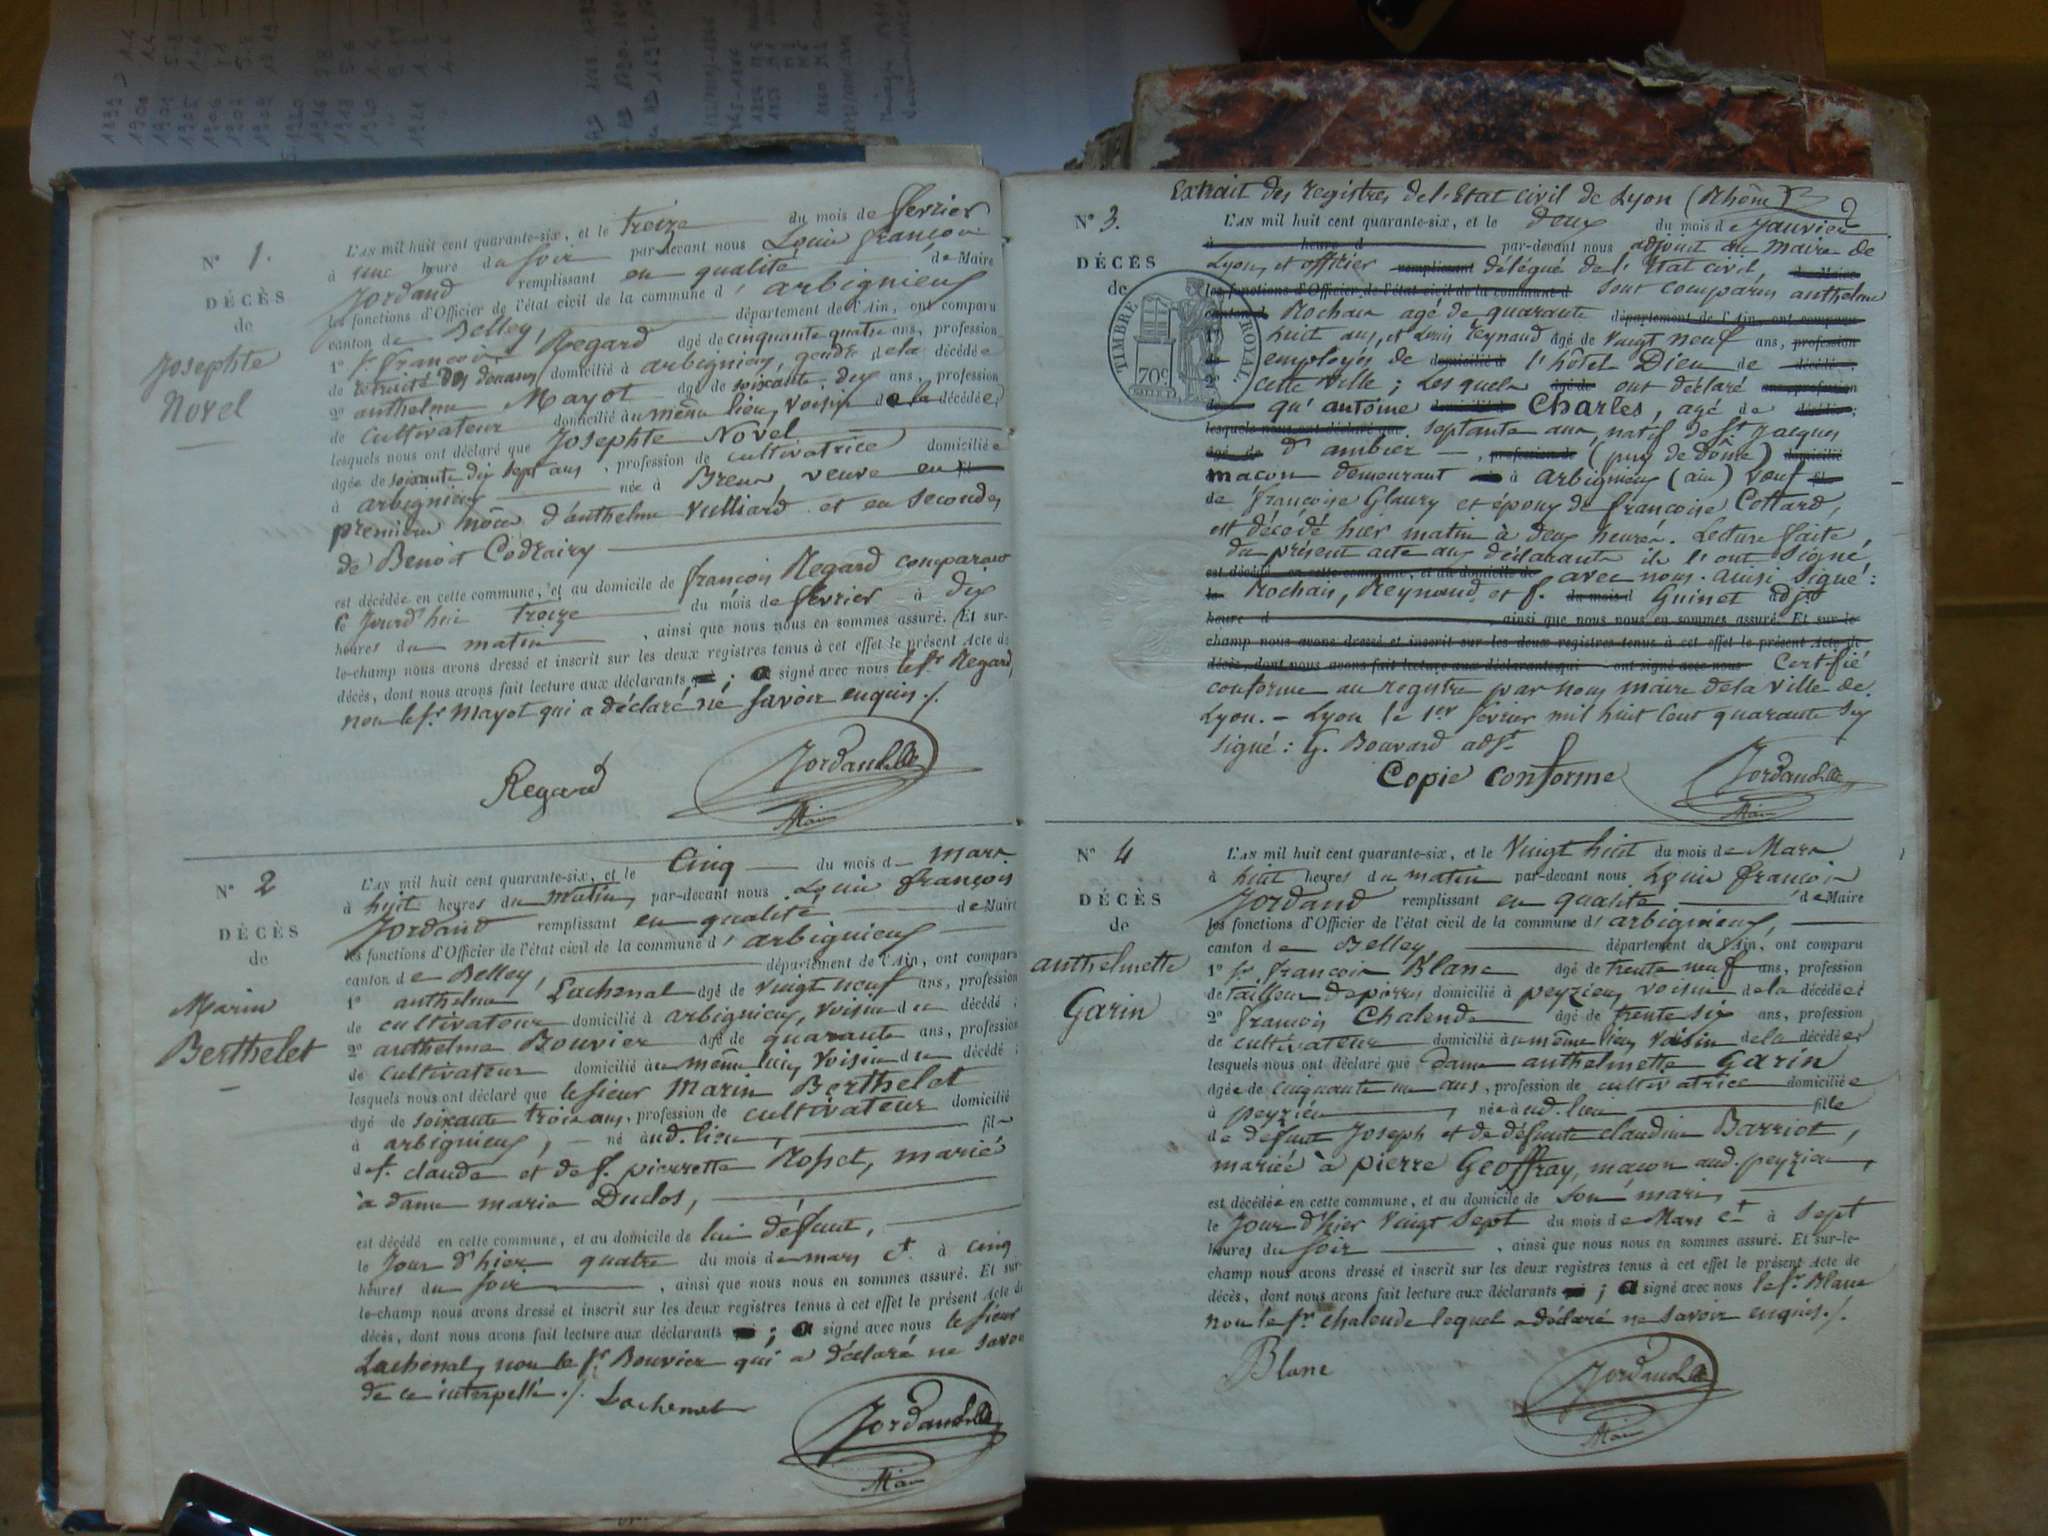 N° 1.
DÉCÈS
de
Josephte
Novel
L'AN mil huit cent quarante-six, et le treize du mois de fevrier
à une heure du soir par-devant nous Louis françois
Jordand remplissant en qualité de Maire
les fonctions d'Officier de l'état civil de la commune d'arbignieu
canton de Belley, département de l'Ain, ont comparu
1° Sr. françois Regard âgé de cinquante quatre ans, profession
de retraité des douanes domicilié à arbignieu, gendre de la décédée
2° anthelme Mayot âgé de soixante dix ans, profession
de cultivateur domicilié au même lieu, voisin de la décédée,
lesquels nous ont déclaré que Josephte Novel
âgée de soixante dix sept ans, profession de cultivatrice domiciliée
à arbignieu née à Brens, veuve en
premieres nôces d'anthelme Vulliard et en secondes
de Benoit Codrairy
est décédée en cette commune, et au domicile de françois Regard comparant
le jourd'hui treize du mois de fevrier à dix
heures du matin, ainsi que nous nous en sommes assuré. Et sur-
le-champ nous avons dressé et inscrit sur les deux registres tenus à cet effet le présent Acte de
décès, dont nous avons fait lecture aux déclarants ; a signé avec nous le sr. Regard,
non le sr. Mayot qui a déclaré ne savoir enquis ./.
Regard
Jordand
Maire
N° 2
DÉCÈS
de
Marin
Berthelet
L'AN mil huit cent quarante-six, et le Cinq du mois d mars
à huit heures du matin, par-devant nous Louis françois
Jordand remplissant en qualité de Maire
les fonctions d'Officier de l'état civil de la commune d'arbignieu
canton de Belley, département de l'Ain, ont comparu
1° anthelme Lachenal âgé de vingt neuf ans, profession
de cultivateur domicilié à arbignieu, voisin du décédé ;
2° anthelme Bouvier âgé de quarante ans, profession
de cultivateur domicilié au même lieu, voisin du décédé ;
lesquels nous ont déclaré que le sieur Marin Berthelet
âgé de soixante trois ans, profession de cultivateur domicilié
à arbignieu, né aud. lieu, fils
de f. claude et de f. pierrette Rosset, marié
à dame marie Duclos,
est décédé en cette commune, et au domicile de lui défunt,
le jour d'hier quatre du mois de mars ct. à cinq
heures du soir, ainsi que nous nous en sommes assuré. Et sur-
le-champ nous avons dressé et inscrit sur les deux registres tenus à cet effet le présent Acte de
décès, dont nous avons fait lecture aux déclarants ; a signé avec nous le sieur
Lachenal, non le sr. Bouvier qui a déclaré ne savoir
de ce interpellé ./. Lachenal
Jordand
Maire
Extrait des registres de l'Etat civil de Lyon (Rhône)
2
N° 3.
DÉCÈS
de
TIMBRE ROYAL.
70c
L'AN mil huit cent quarante-six, et le deux du mois de Janvier
à heure d par-devant nous adjoint au maire de
Lyon, et officier remplissant délégué de l'Etat civil, de Maire
les fonctions d'Officier de l'état civil de la commune d sont comparus anthelme
canton d Rochais agé de quarante département de l'Ain, ont comparu
huit ans, et Louis Reynaud âgé de vingt neuf ans, profession
employés de domicilié à l'hôtel Dieu de décédé
2° cette ville ; Lesquels âgé de ont déclaré ans, profession
qu'antoine domicilié à Charles, agé de décédé ;
lesquels nous ont déclaré que septante ans, natif de St Jacques
âgé de d'ambier, profession de (puy de dôme) domicilié
maçon demeurant à arbignieu (ain) veuf
de françoise Glaury et époux de françoise Cottard,
est décédé hier matin à deux heures. Lecture faite
du présent acte aux déclarants ils l'ont signé
est décédé en cette commune, et au domicile de avec nous. ainsi signé :
le Rochais, Reynaud et f. du mois d Guinet adjt
heure d , ainsi que nous nous en sommes assuré. Et sur-le-
champ nous avons dressé et inscrit sur les deux registres tenus à cet effet le présent Acte de
décès, dont nous avons fait lecture aux déclarants qui ont signé avec nous Certifié
conforme au registre par nous maire de la ville de
Lyon. - Lyon le 1er fevrier mil huit cent quarante six
signé : G. Bouvard adjt.
Copie conforme
Jordand
Maire
N° 4
DÉCÈS
de
anthelmette
Garin
L'AN mil huit cent quarante-six, et le Vingt huit du mois de Mars
à huit heures du matin par-devant nous Louis françois
Jordand remplissant en qualité de Maire
les fonctions d'Officier de l'état civil de la commune d'arbignieu,
canton de Belley, département de l'Ain, ont comparu
1° Sr. françois Blanc âgé de trente neuf ans, profession
de tailleur de pierres domicilié à peyzieu, voisin de la décédée ;
2° françois Chalende âgé de trente six ans, profession
de cultivateur domicilié au même lieu, voisin de la décédée,
lesquels nous ont déclaré que dame anthelmette Garin
âgée de cinquante un ans, profession de cultivatrice domiciliée
à peyzieu, née aud. lieu fille
de defunt Joseph et de défunte claudine Barriot,
mariée à pierre Geoffray, maçon aud. peyzieu,
est décédée en cette commune, et au domicile de son mari,
le jour d'hier vingt sept du mois de Mars ct. à sept
heures du soir, ainsi que nous nous en sommes assuré. Et sur-le-
champ nous avons dressé et inscrit sur les deux registres tenus à cet effet le présent Acte de
décès, dont nous avons fait lecture aux déclarants ; a signé avec nous le sr. Blanc
non le sr. chalende lequel a déclaré ne savoir enquis ./.
Blanc
Jordand
Maire